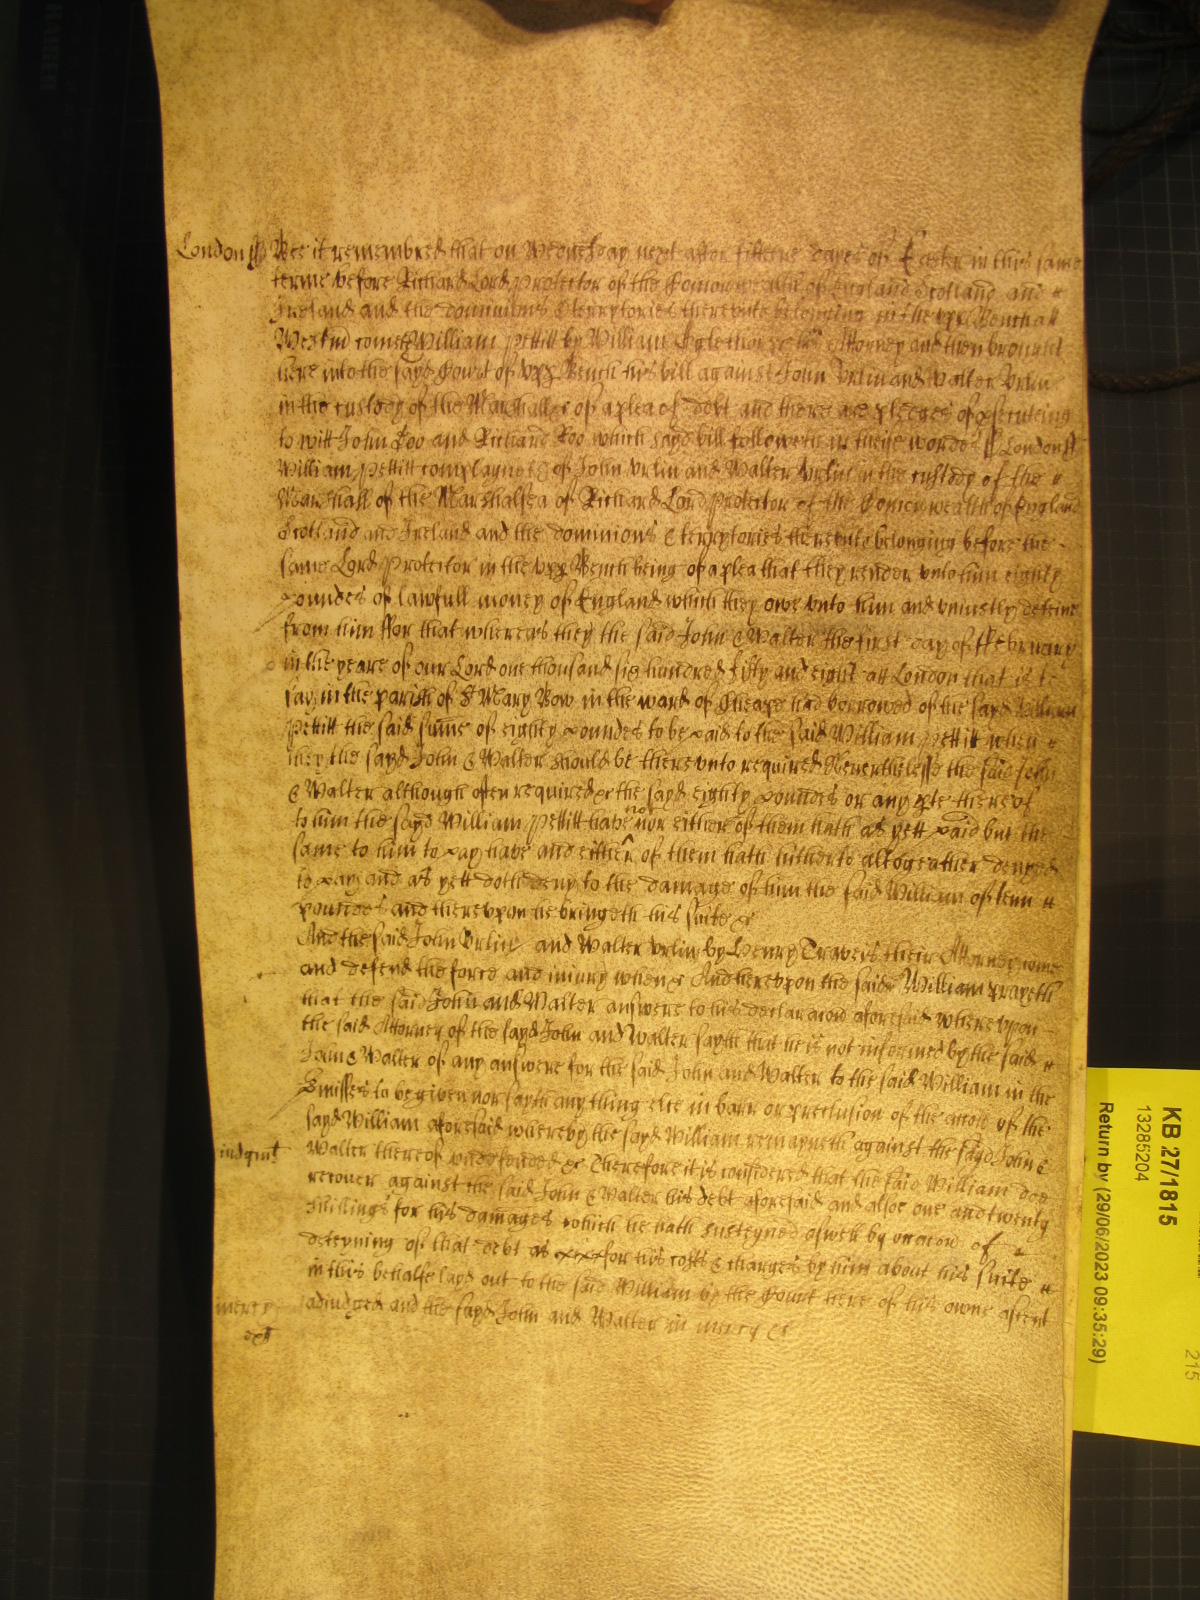 London ss Bee it remembred that on Wednesday next after fifteene dayes of Easter in this same
terme before Richard Lord Protector of the Comonwealth of England Scotland and
Ireland and the dominions & terrytories therevnto belonging in the vpp Bench att
Westm̃ cometh William Pettitt by William Eglemor his Attorney and then brought
here into the sayd Court of vpp Bench his bill against John Vrlin and Walter Vrlin
in the custody of the Marshall &c of a plea of debt and there are pledges of psecuteing
to witt John Doo and Richard Roo which sayd bill followeth in theise wordes ss London ss
William Pettitt complayneth of John Vrlin and Walter Vrlin in the custody of the
Marshall of the Marshalsea of Richard Lord Protector of the Comonwealth of England
Scotland and Ireland and the dominions & terrytories therevnto belonging before the
same Lord Protector in the vpp Bench being of a plea that they render vnto him eighty
poundes of lawfull money of England which they owe vnto him and vniustly deteine
from him ffor that whereas they the said John & Walter the first day of ffebruary
in the yeare of our Lord one thousand six hundred fifty and eight att London that is to
say in the parish of St Mary Bow in the ward of Cheape had borrowed of the sayd William
Pettitt the said sume of eighty poundes to be paid to the said William Pettitt when
they the sayd John & Walter should be therevnto required Neverthelesse the said John
& Walter although often required &c the sayd eighty poundes or any pte thereof
to him the sayd William Pettitt have not nor either of them hath as yett paid but the
same to him to pay have and either of them hath hitherto altogeather denyed
to pay and as yett doth deny to the damage of him the said William of tenn
poundes and therevpon he bringeth his suite &c
And the said John Vrlin and Walter Vrlin by Henry Travers their Attorney come
and defend the force and iniury when &c And herevpon the said William prayeth
that the said John and Walter answere to his declaracon aforesaid wherevpon
the said Attorney of the sayd John and Walter sayth that he is not informed by the said
John & Walter of any answere for the said John and Walter to the said William in the
pmisses to be given nor sayth any thing else in barr or preclusion of the accon of the
sayd William aforesaid whereby the sayd William remayneth against the sayd John &
iudgmt Walter thereof vndefended &c Therefore it is considered that the said William doe
recover against the said John & Walter his debt aforesaid and alsoe one and twenty
shillings for his damages which he hath susteyned aswell by occacon of
deteyning of that debt as for his costs & charges by him about his suite
in this behalfe layd out to the said William by the Court here of his owne assent
mercy adiudged and the sayd John and Walter in mercy &c
KB 27/1815
13285204
Return by (29/06/2023 09:35:29)
215